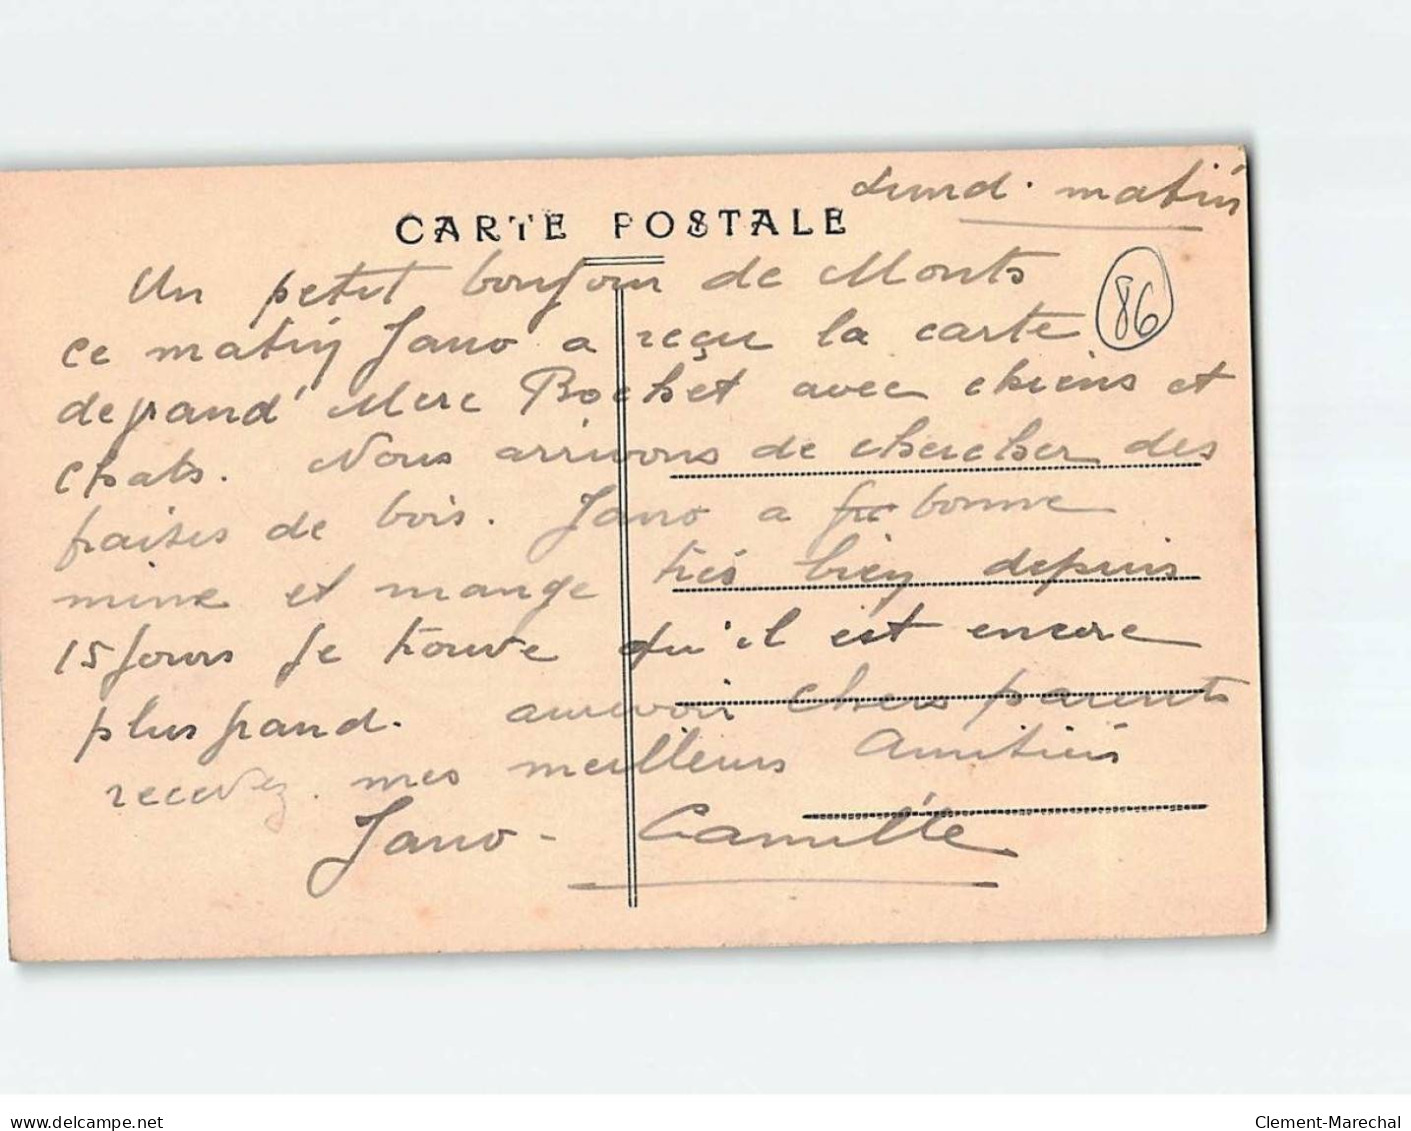 Lund. matin
CARTE POSTALE
Un petit bonjour de Monts
86
ce matin Jano a reçu la carte
de grand' Mere Rochet avec chiens et
chats. Nous arrivons de chercher des
fraises de bois. Jano a bonne
mine et mange très bien depuis
15 jours je trouve qu'il est encore
plus grand. aurevoir chers parents
recevez mes meilleurs Amitiés
Jano - Camille
www.delcampe.net
Clement-Marechal